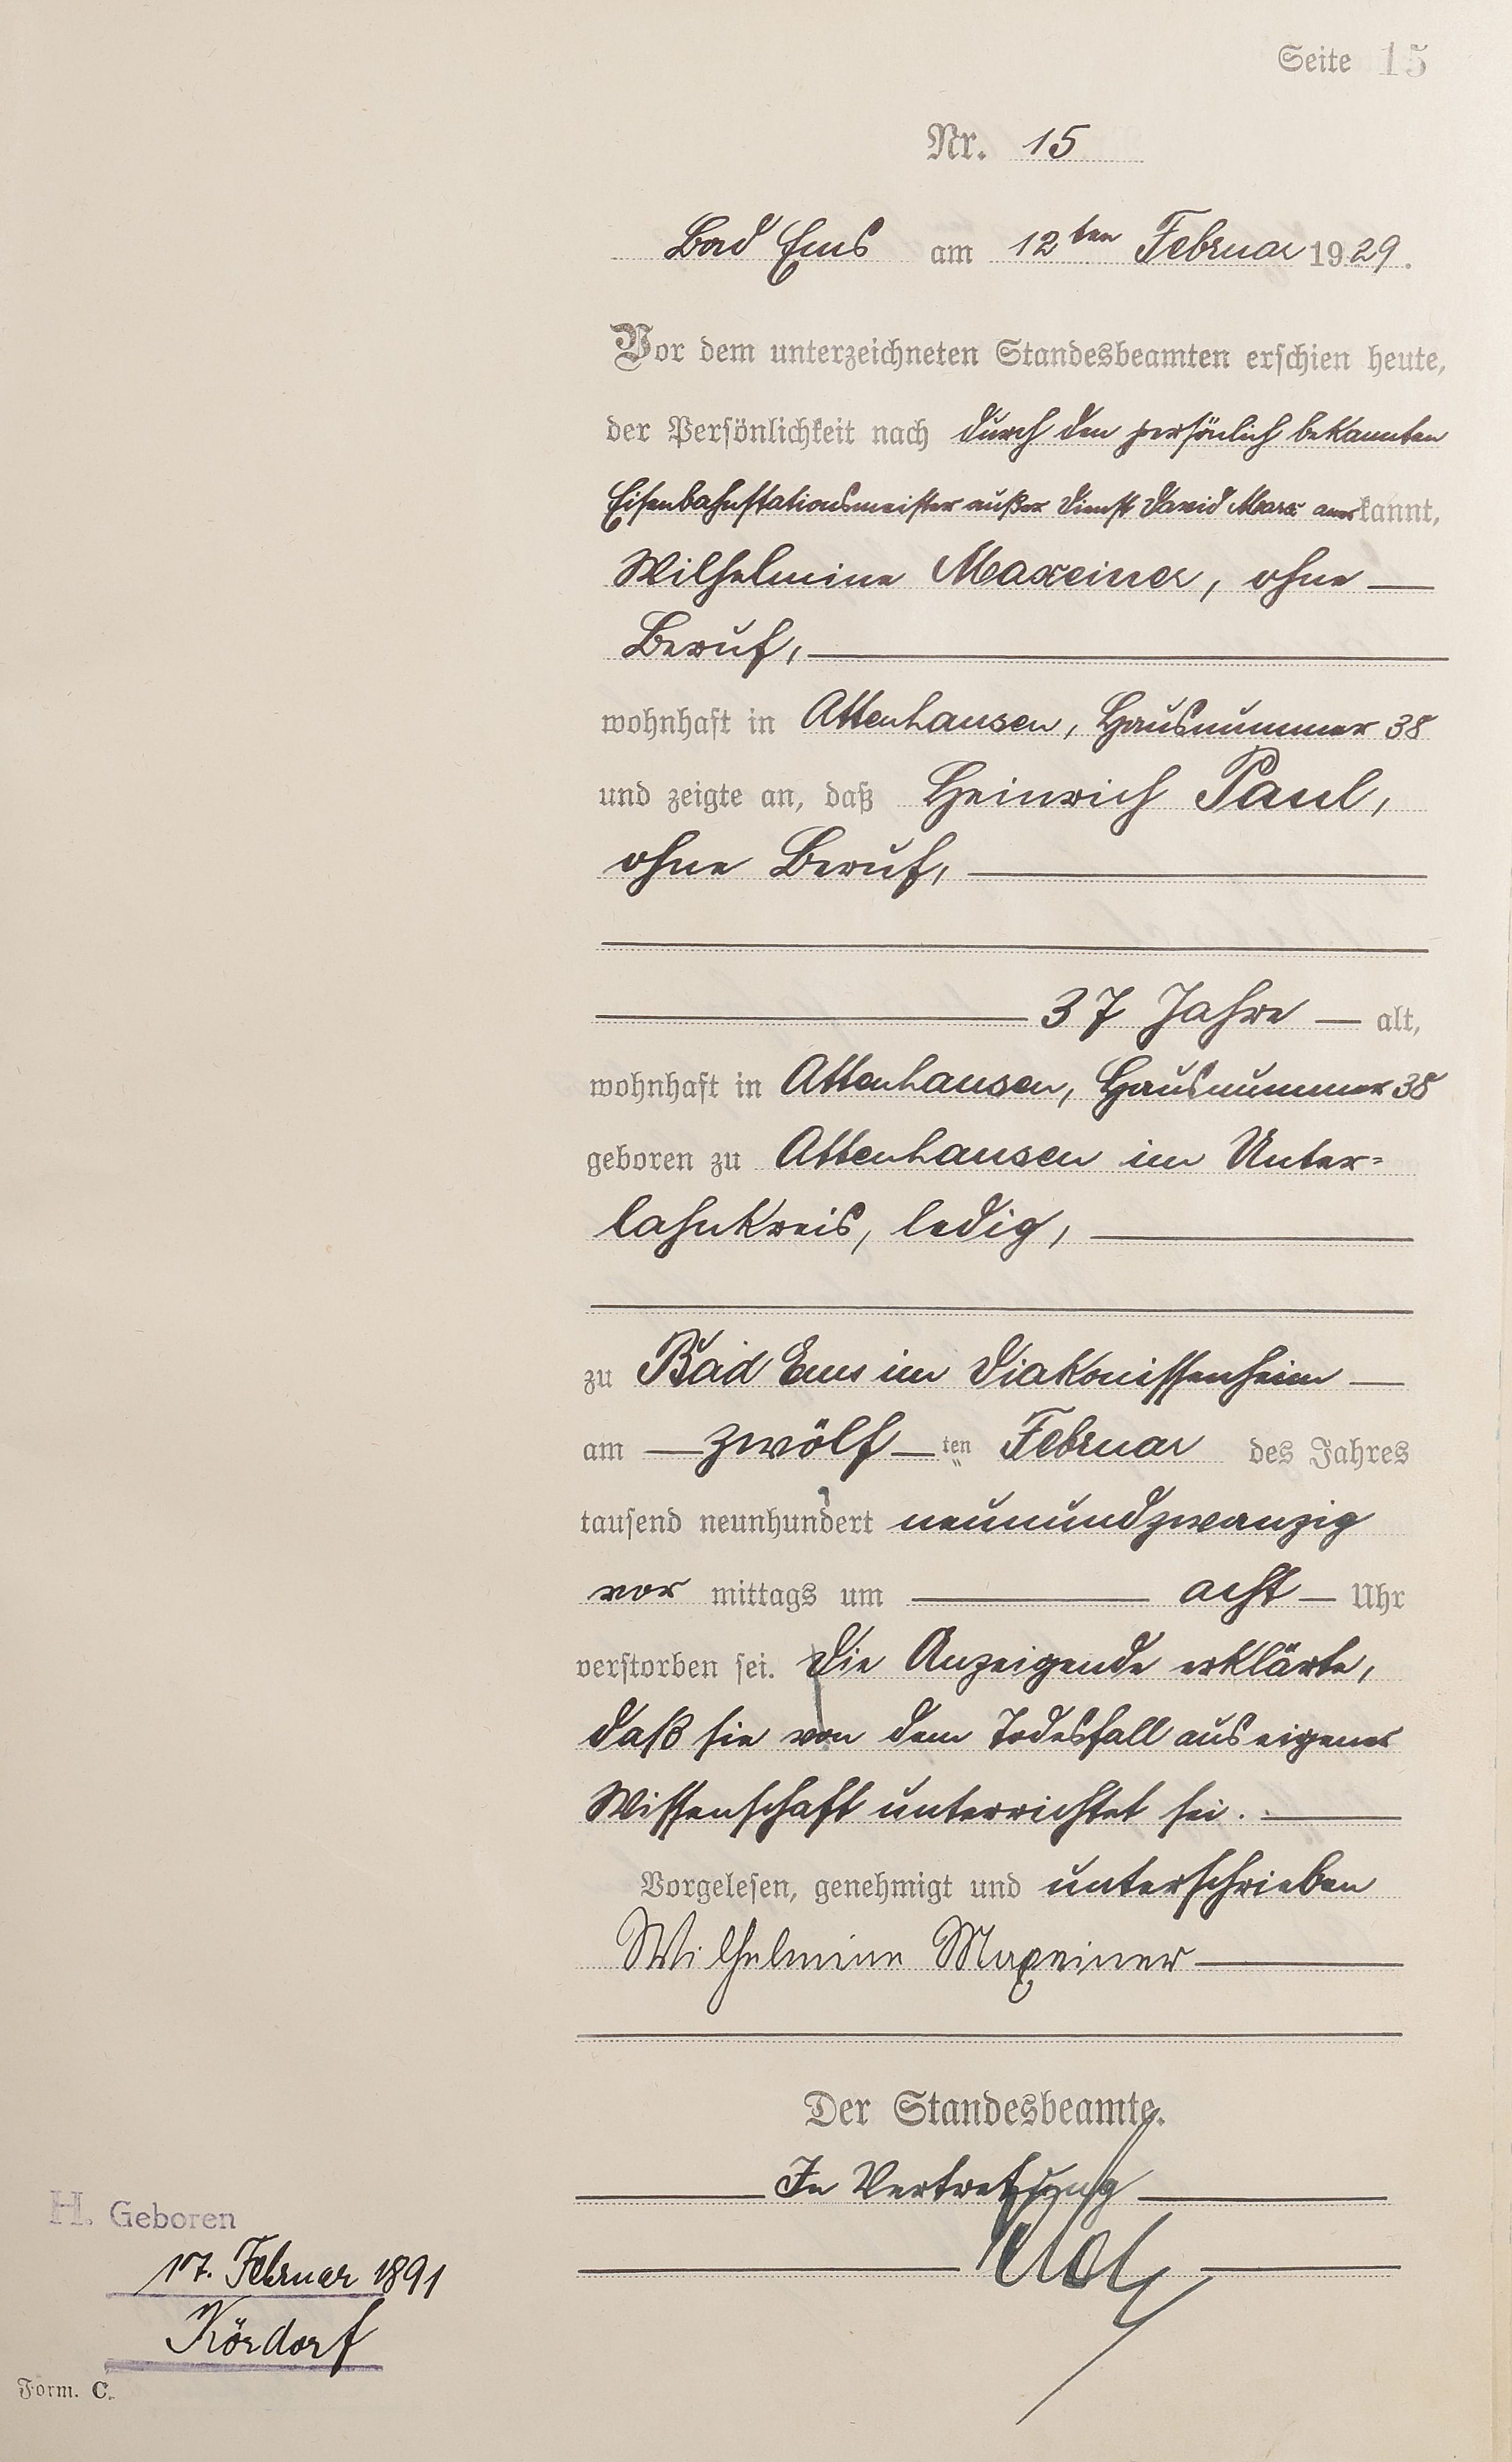 Seite 15
Nr. 15
Bad Ems am 12ten Februar 1929.
Vor dem unterzeichneten Standesbeamten erschien heute,
der Persönlichkeit nach durch den persönlich bekannten
Eisenbahnstationsmeister außer Dienst David Marx anerkannt,
Wilhelmine Maxeiner, ohne
Beruf,
wohnhaft in Attenhausen, Hausnummer 38
und zeigte an, daß Heinrich Paul,
ohne Beruf,
37 Jahre alt,
wohnhaft in Attenhausen, Hausnummer 38
geboren zu Attenhausen im Unter=
lahnkreis, ledig,
zu Bad Ems im Diakonissenheim
am zwölf ten Februar des Jahres
tausend neunhundert neunundzwanzig
vor mittags um acht Uhr
verstorben sei. Die Anzeigende erklärte,
daß sie von dem Todesfall aus eigener
Wissenschaft unterrichtet sei.
Vorgelesen, genehmigt und unterschrieben
Wilhelmine Maxeiner
Der Standesbeamte.
In Vertretung
H. Geboren
17. Februar 1891
Kördorf
Form. C.